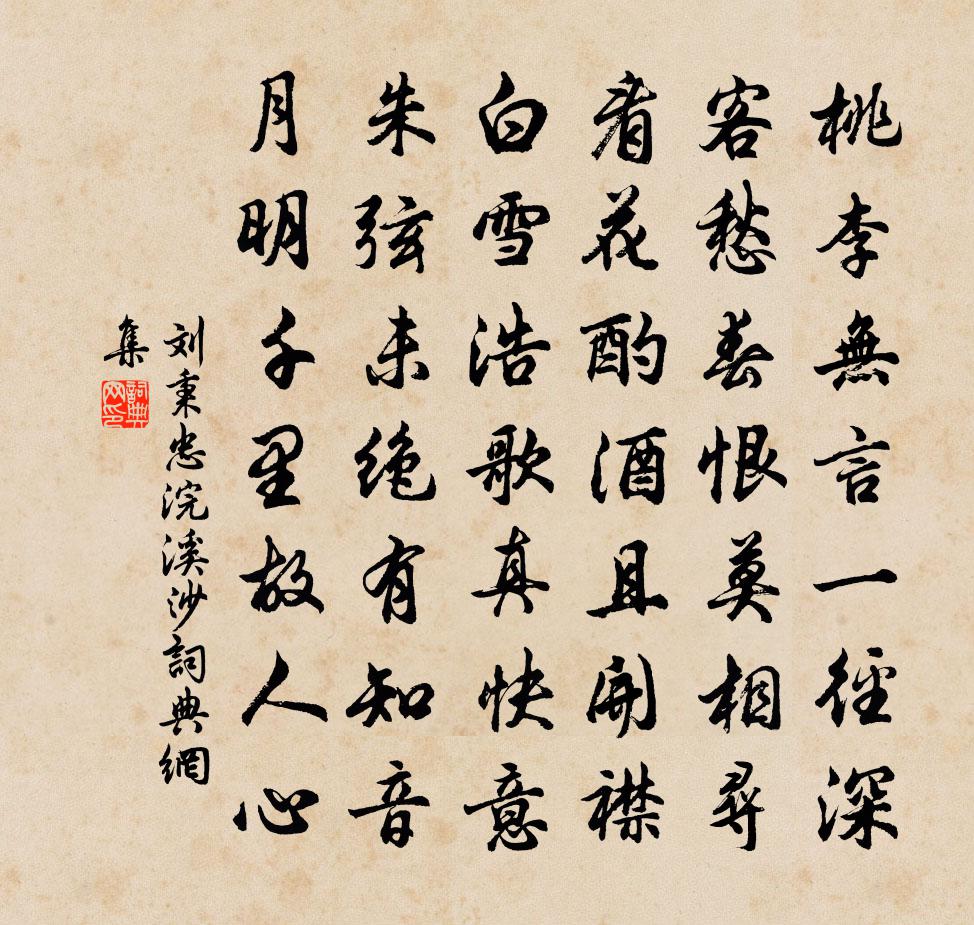 桃李無言一徑深
客愁春恨莫相尋
看花酌酒且開襟
白雪浩歌真快意
朱弦未絶有知音
月明千里故人心
刘秉忠浣溪沙詞典網
集
詞典网印